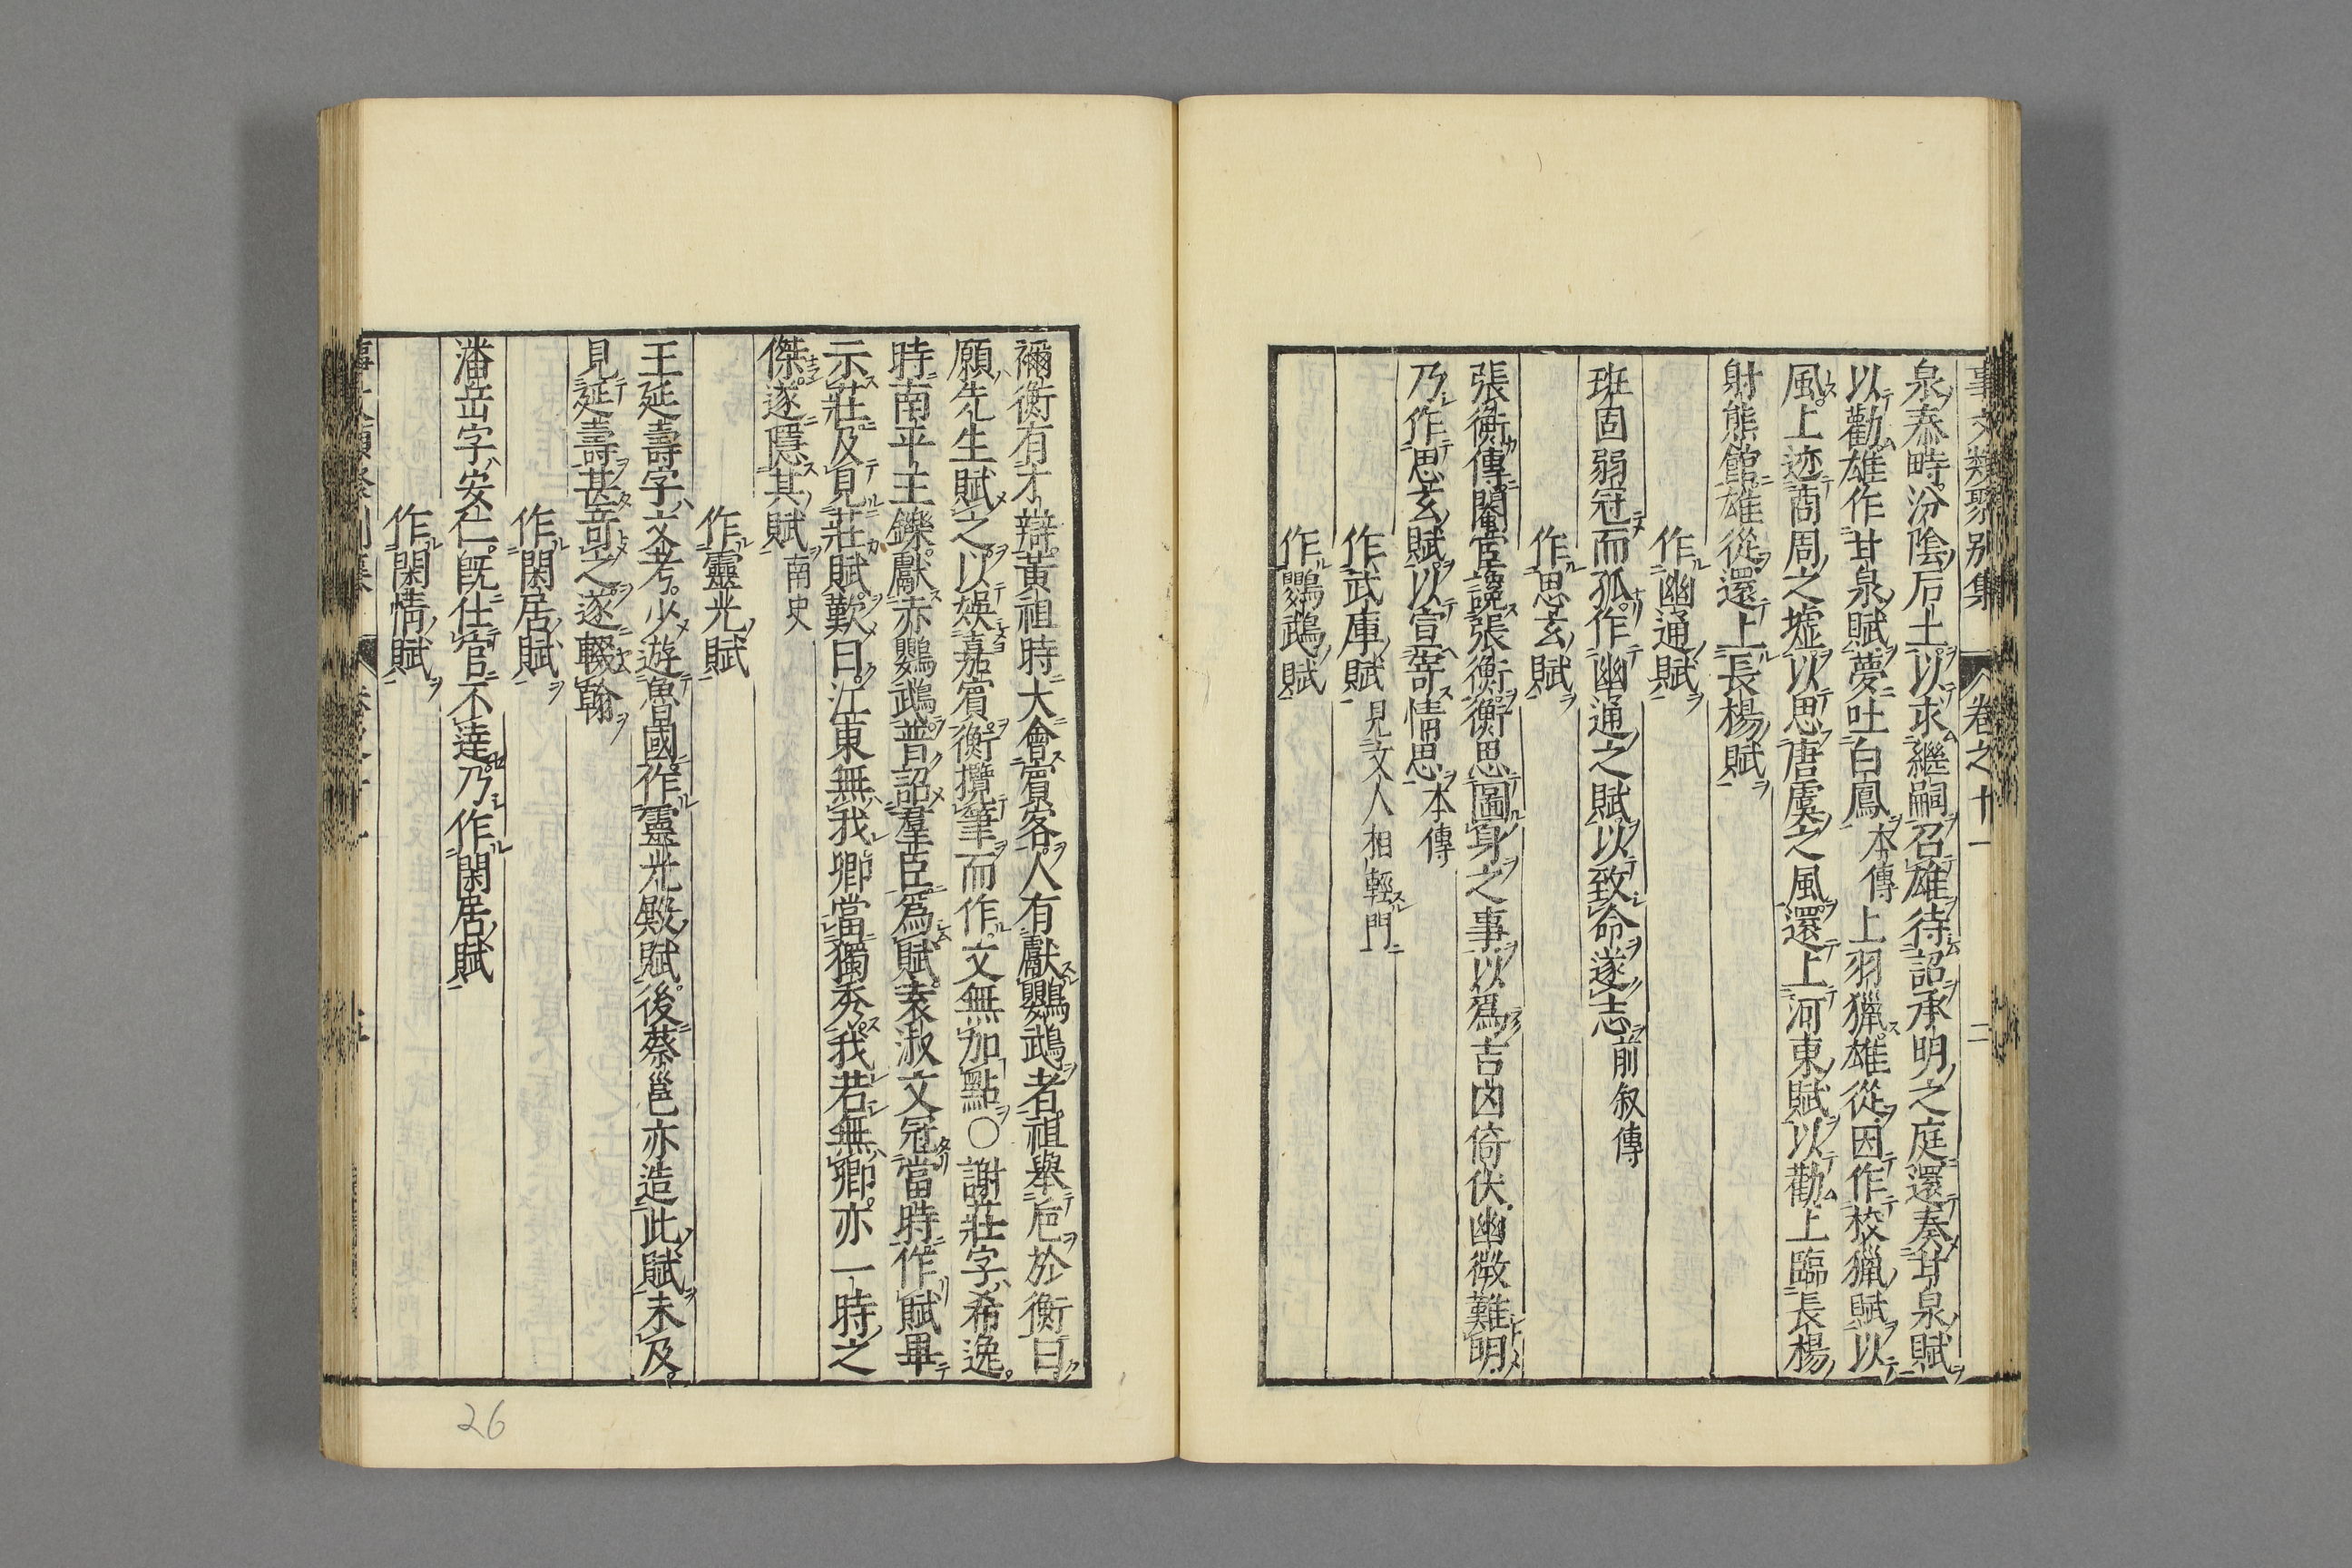 事文類聚別集 卷之十一 二
泉泰畤汾陰后土以求繼嗣召雄待詔承明之庭還奏甘泉賦
以勸雄作甘泉賦夢吐白鳳本傳上羽獵雄從因作校獵賦以
風上迹商周之墟以思唐虞之風還上河東賦以勸上臨長楊
射熊館雄從還上長楊賦
作幽通賦
班固弱冠而孤作幽通之賦以致命遂志前叙傳
作思玄賦
張衡傳閹宦讒張衡衡思圖身之事以爲吉凶倚伏幽微難明
乃作思玄賦以宣寄情思本傳
作武庫賦見文人相輕門
作鸚鵡賦
禰衡有才辯黃祖時大會賓客人有獻鸚鵡者祖舉卮於衡曰
願先生賦之以娛嘉賓衡攬筆而作文無加點〇謝莊字希逸
時南平王鑠獻赤鸚鵡普詔羣臣爲賦袁淑文冠當時作賦畢
示莊及見莊賦歎曰江東無我卿當獨秀我若無卿亦一時之
傑遂隱其賦南史
作靈光賦
王延壽字文考少遊魯國作靈光殿賦後蔡邕亦造此賦未及
見延壽甚奇之遂輟翰
作閑居賦
潘岳字安仁既仕宦不達乃作閑居賦
作閑情賦
26